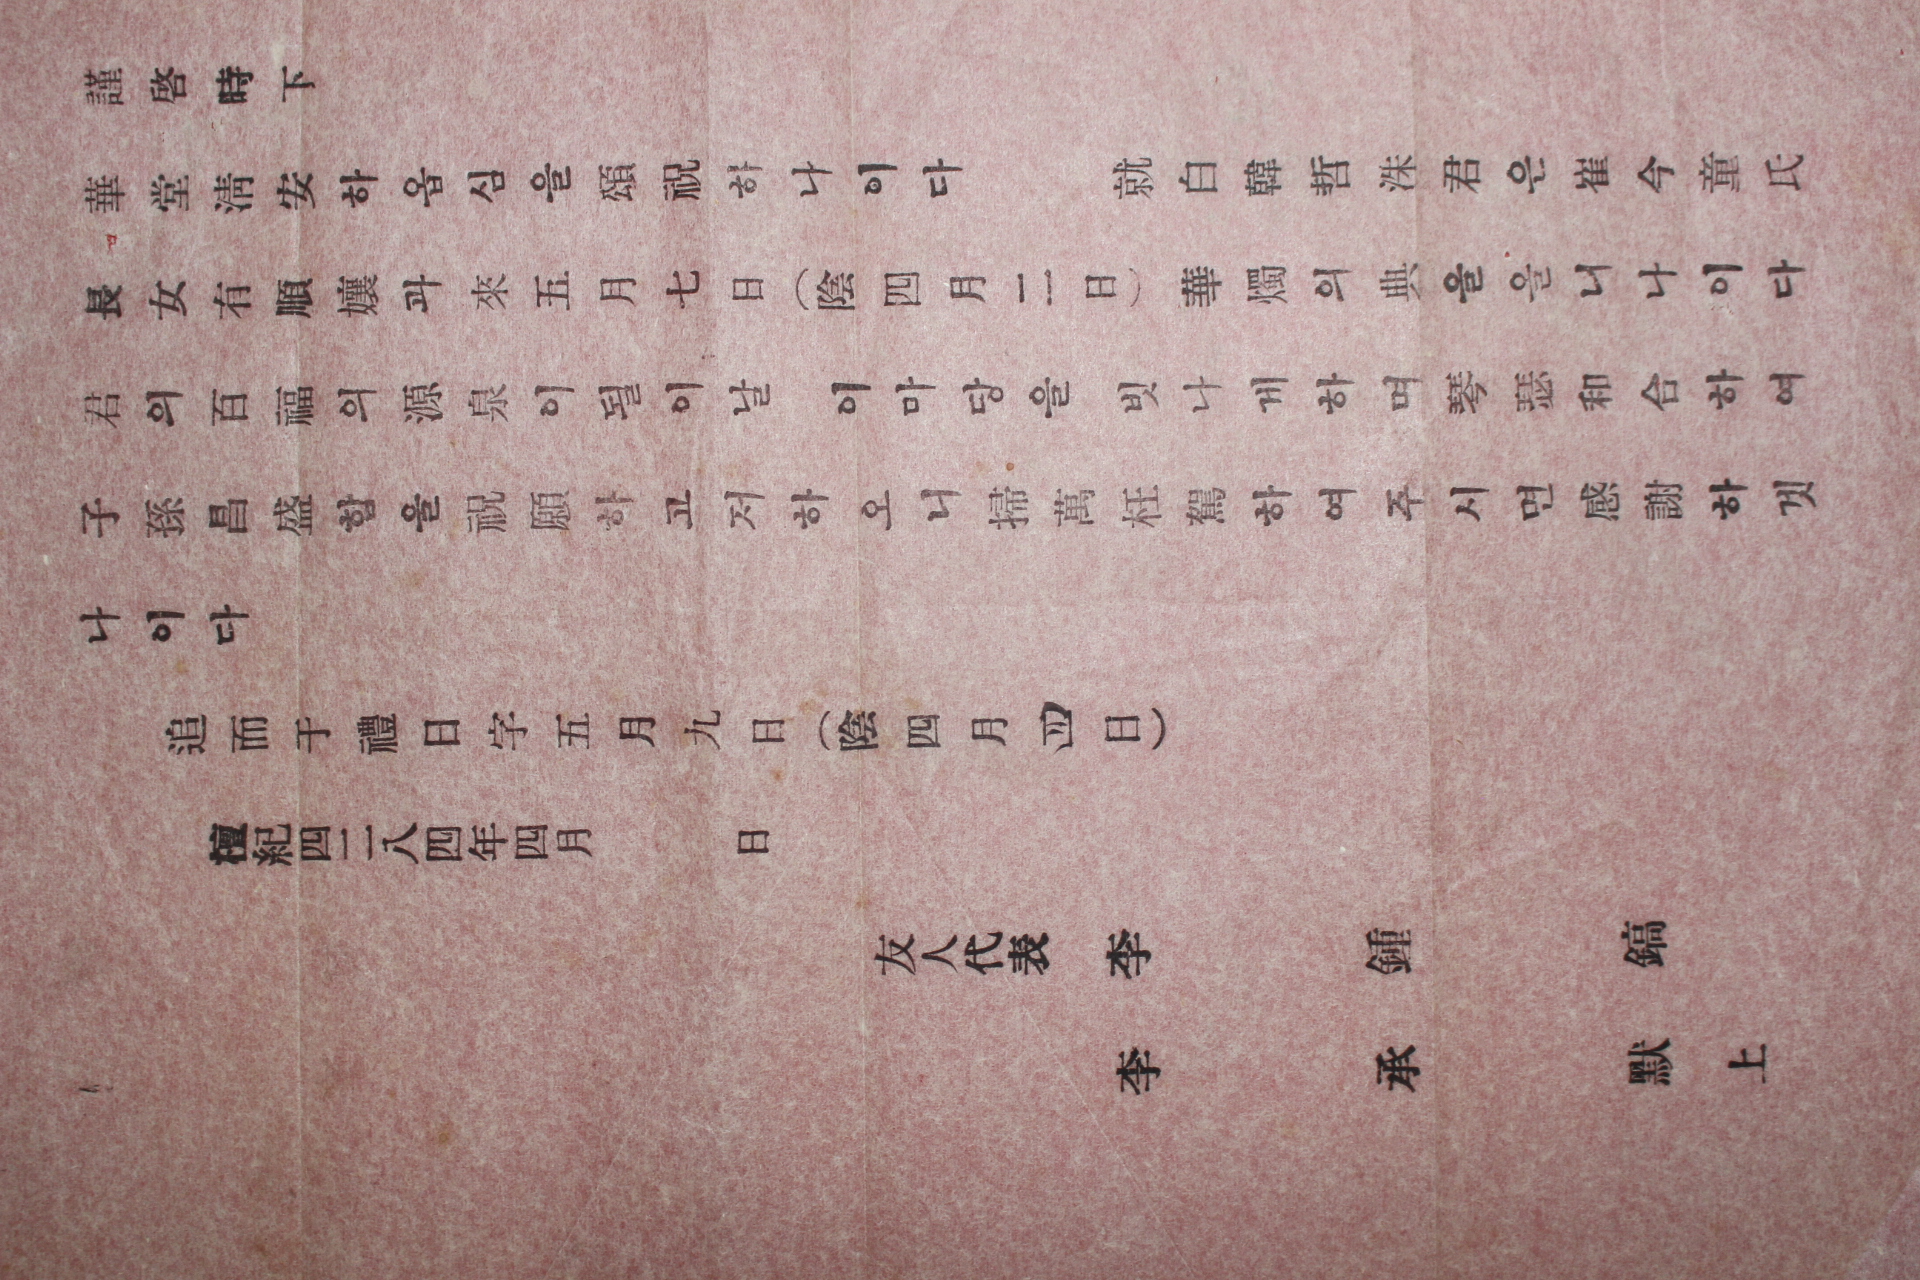 謹啓時下
華堂淸安하옵심을頌祝하나이다 就白韓哲洙君은崔今童氏
長女有順孃과來五月七日(陰四月二日)華燭의典을을니나이다
君의百福의源泉이될이날 이마당을 빗나게하며琴瑟和合하여
子孫昌盛함을祝願하고저하오니掃萬枉駕하여주시면感謝하겟
나이다
追而于禮日字五月九日(陰四月四日)
檀紀四二八四年四月 日
友人代表 李鍾鎬
李承默 上